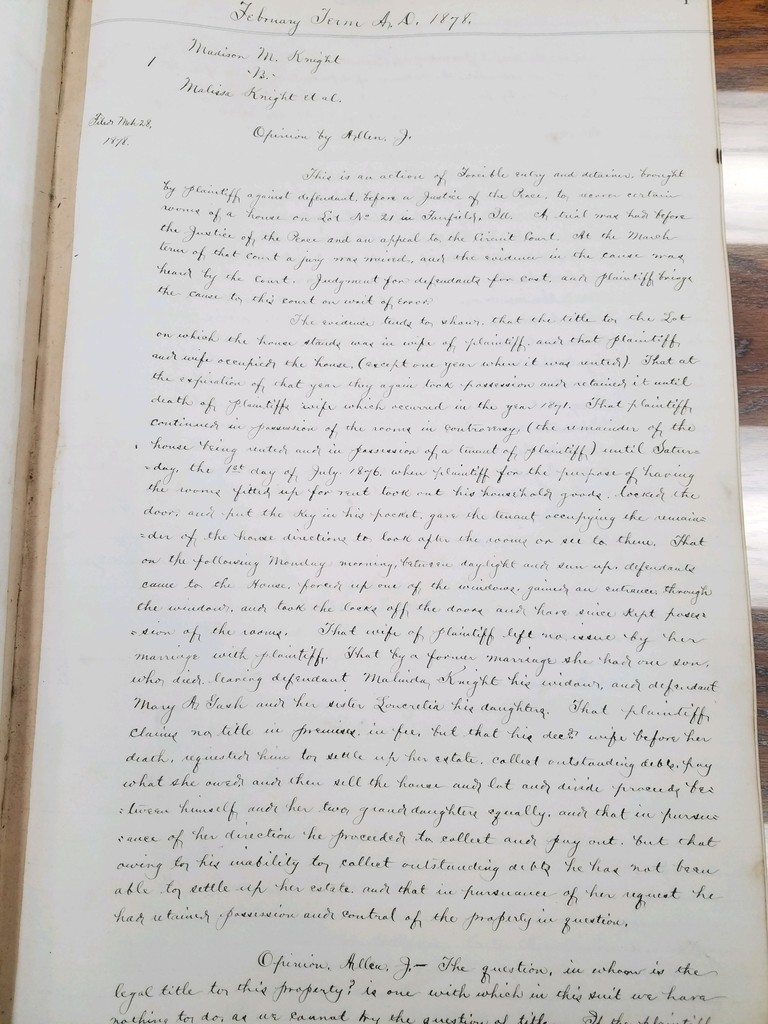 1
February Term A.D. 1878.
1
Madison M. Knight
vs.
Malissa Knight et al.
Filed Mch 28, 1878.
Opinion by Allen. J.
This is an action of Forcible entry and detainer, brought
by plaintiff against defendant, before a Justice of the Peace, to recover certain
rooms of a house on Lot No 21 in Fairfield, Ill. A trial was had before
the Justice of the Peace and an appeal to the Circuit Court. At the March
term of that court a jury was waived, and the evidence in the cause was
heard by the court. Judgment for defendants for cost, and plaintiff brings
the cause to this court on writ of error.
The evidence tends to show, that the title to the Lot
on which the house stands was in wife of plaintiff, and that plaintiff
and wife occupied the house, (except one year when it was rented) That at
the expiration of that year they again took possession and retained it until
death of plaintiffs wife which occurred in the year 1871. That plaintiff
continued in possession of the rooms in controversy, (the remainder of the
house being rented and in possession of a tenant of plaintiff) until Satur=
=day, the 1st day of July 1876, when plaintiff for the purpose of having
the rooms fitted up for rent took out his household goods, locked the
door, and put the key in his pocket, gave the tenant occupying the remain=
=der of the house directions to look after the rooms or see to them. That
on the following Monday morning, between daylight and sun up, defendants
came to the House, forced up one of the windows, gained an entrance through
the window, and took the locks off the doors and have since kept posses=
=sion of the rooms. That wife of plaintiff left no issue by her
marriage with plaintiff. That by a former marriage she had one son,
who died, leaving defendant Malinda Knight his widow, and defendant
Mary A. Gash and her sister Loucretia his daughters. That plaintiff
claims no title in premises, in fee, but that his decd wife before her
death, requested him to settle up her estate, collect outstanding debts, pay
what she owed and then sell the house and lot and divide proceeds be=
=tween himself and her two grand daughters equally, and that in pursu=
=ance of her direction he proceeded to collect and pay out, but that
owing to his inability to collect outstanding debts he has not been
able to settle up her estate, and that in pursuance of her request he
had retained possession and control of the property in question.
Opinion. Allen. J. — The question, in whom is the
legal title to this property? is one with which in this suit we have
nothing to do, as we cannot try the question of title. If the plaintiff